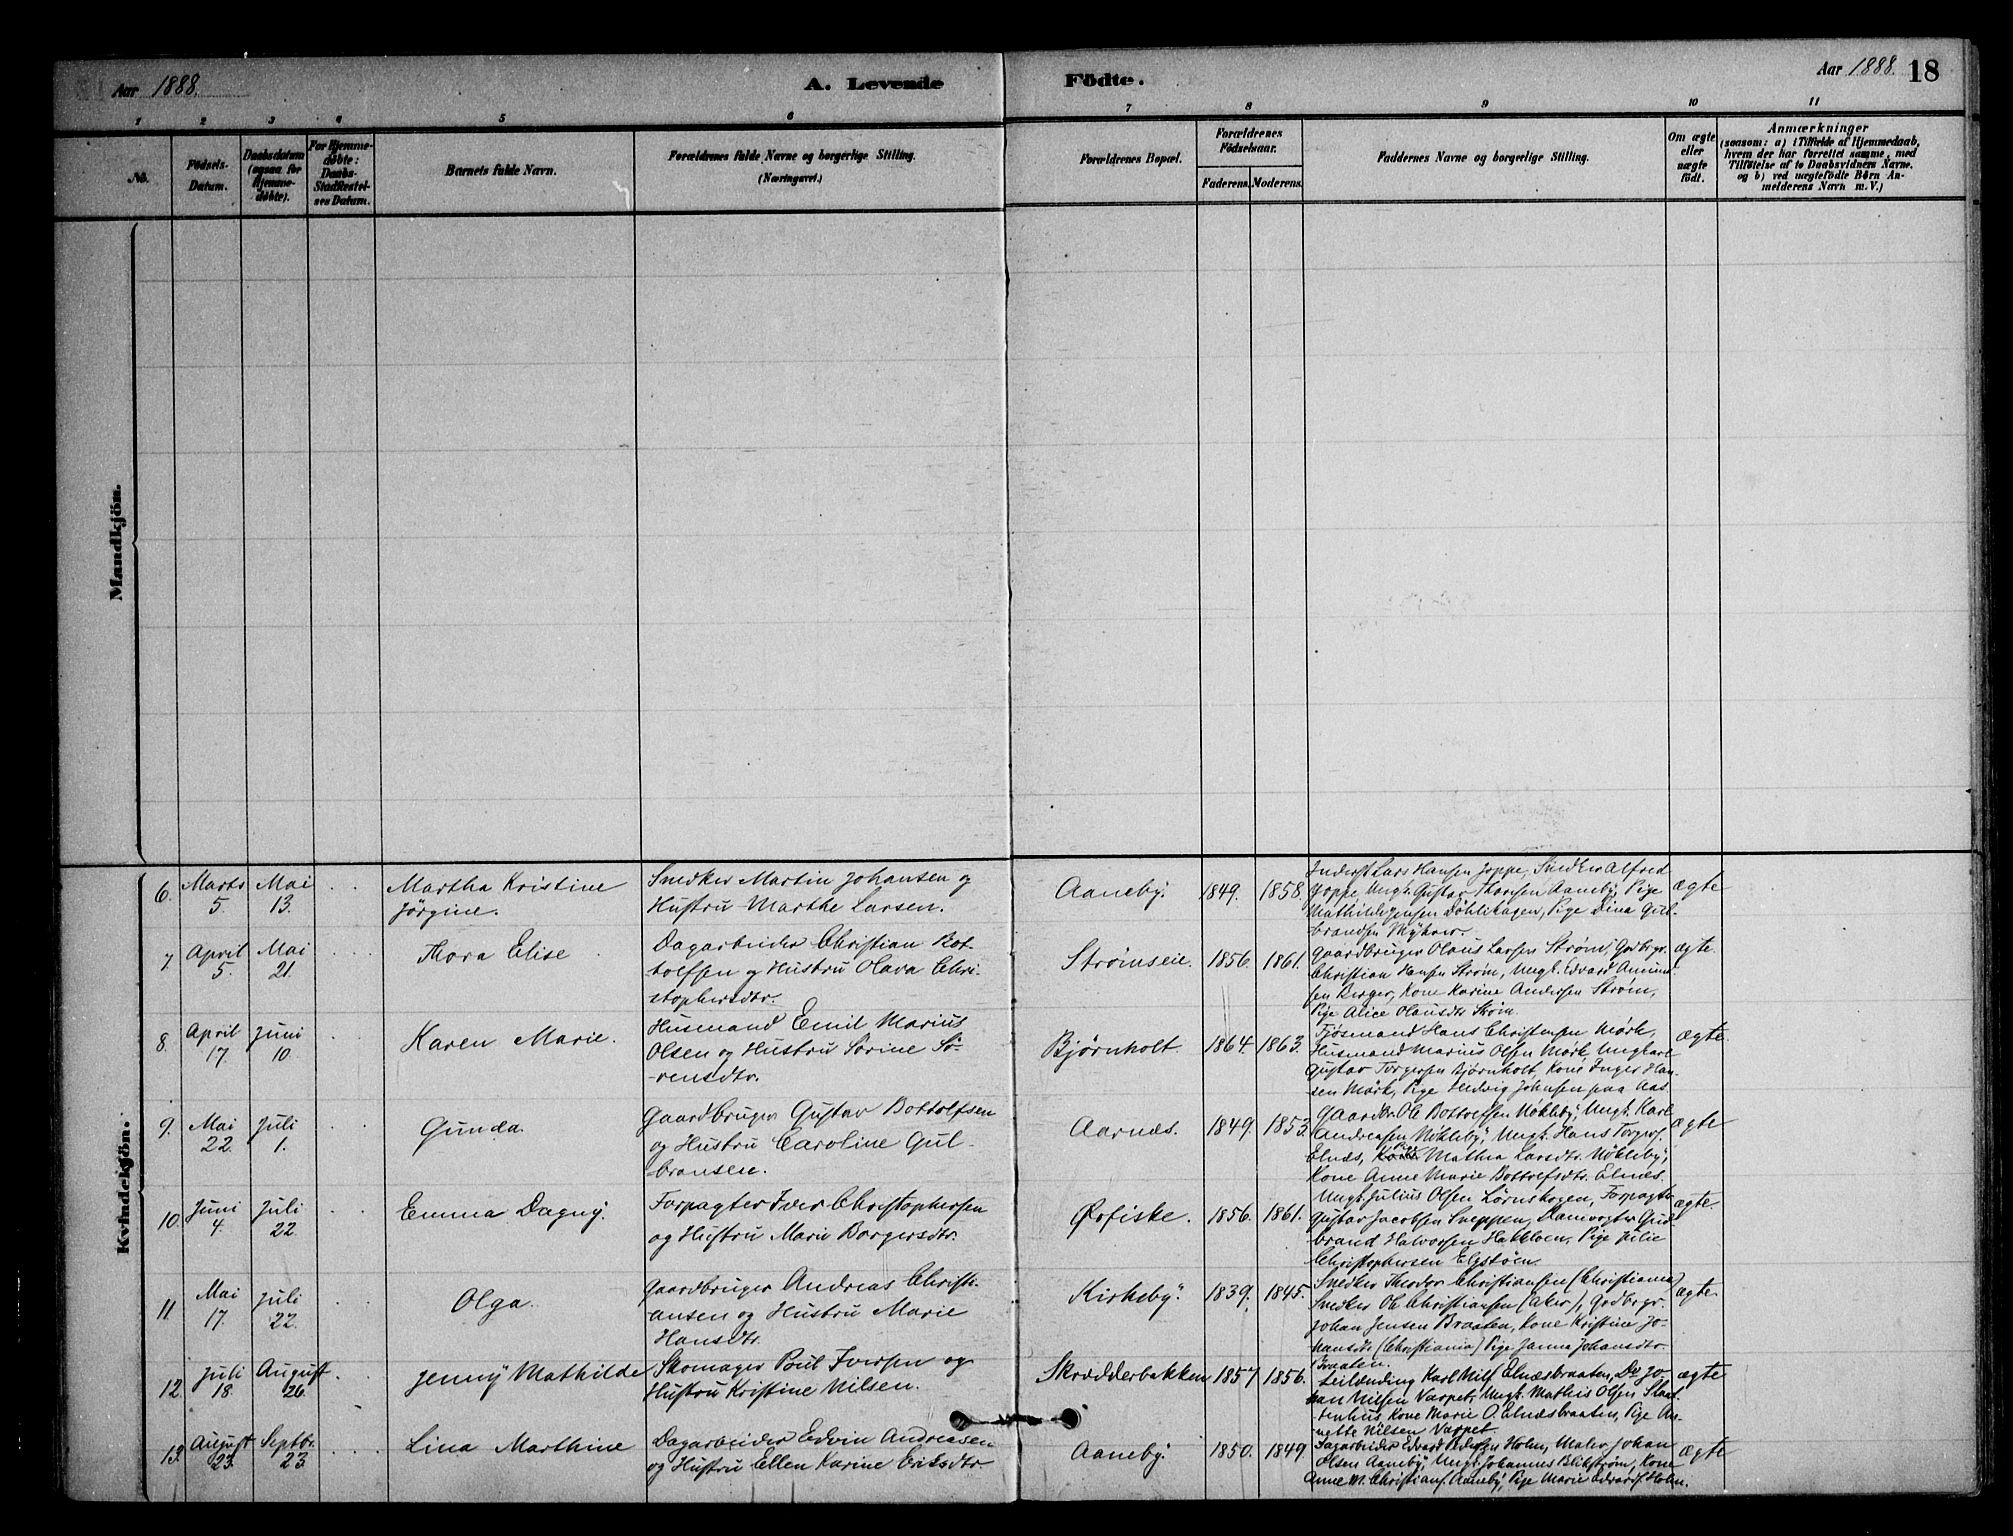 Aar 1888.
A. Levende
Födte.
Aar 1888. 18
1 2 3 4 5 6 7 8 9 10 11
No.
Födsels-
Datum.
Daabsdatum
(ogsaa for
Hjemme-
døbte).
For Hjemme-
døbte:
Daabs-
Stadfæstel-
ses Datum.
Barnets fulde Navn.
Forældrenes fulde Navne og borgerlige Stilling.
(Næringsvei.)
Forældrenes Bopæl.
Forældrenes
Födselsaar.
Faderens. Moderens.
Faddernes Navne og borgerlige Stilling.
Om ægte
eller
uægte
født.
Anmærkninger
(saasom: a) i Tilfælde af Hjemmedaab,
hvem der har forrettet samme, med
Tilføielse af to Daabsvidners Navne.
og b) ved uægtefödte Børn An-
melderens Navn m. V.)
Mandkjön.
Kvindekjön.
6. Marts 5. Mai 13. Martha Kristine
Jörgine.
Snedker Martin Johansen og
Hustru Marthe Larsen.
Aaneby. 1849. 1858.
Inderst Lars Hansen Joppe, Snedker Alfred
Joppe, Ungk. Gustav Thorsen Aaneby, Pige
Mathilde Jensen Döhlihagen, Pige Dina Gul-
brandsen
ægte
7. April 5. Mai 21. Thora Elise.
Dagarbeider Christian Bot-
tolfsen og Hustru Olava Chri-
stophersdtr.
Strömseie. 1856. 1861.
Gaardbruger Olaus Larsen Ström, Gdbrgr.
Christian Hansen Ström, Ungk. Edvard Amund-
sen Berger, Kone Karine Andersen Ström,
Pige Alice Olausdtr Ström.
ægte.
8. April 17. Juni 10. Karen Marie.
Husmand Emil Marius
Olsen og Hustru Sörine Sö-
rensdtr.
Bjørnholt. 1864. 1863.
Fjösmand Hans Christensen Mörk,
Husmand Marius Olsen Mörk, Ungkarl
Gustav Torgersen Bjørnholt, Kone Inger Han-
sen Mörk, Pige Hedvig Johnsen paa Aas
ægte.
9. Mai 22. Juli 1. Gunda.
Gaardbruger Gustav Bottolfsen
og Hustru Caroline Gul-
bransen.
Aarnæs. 1849. 1853.
Gaardbr. Ole Bottolfsen Mökleby, Ungk. Karl
Andreasen Mökleby, Ungk. Hans Torgers.
Elnæs, Pige Mathea Larsdtr. Mökleby,
Kone Anne Marie Bottolfsdtr. Elnæs.
ægte
10. Juni 4. Juli 22. Emma Dagny.
Forpagter Iver Christophersen
og Hustru Marie Borgersdtr.
Ørfiske. 1856. 1861.
Ungk. Julius Olsen Lörnskogen, Forpagter
Gustav Jacobsen Sneppen, Damvogter Gud-
brand Halvorsen Hakkloen, Pige Julie
Christophersen Elgstöen.
ægte.
11. Mai 17. Juli 22. Olga.
Gaardbruger Andreas Christi-
ansen og Hustru Marie
Hansdtr.
Kirkeby. 1839. 1845.
Snedker Theodor Christiansen (Christiania)
Snedker Ole Christiansen (Aker), Gdbrgr.
Johan Jensen Braaten, Kone Kristine Jo-
hansdtr (Christiania) Pige Janna Johansdtr
Braaten.
ægte.
12. Juli 18. August 26. Jenny Mathilde
Skomager Poul Iversen og
Hustru Kristine Nilsen.
Skrædderbakken 1857 1856.
Leilænding Karl Nils. Elnæsbraaten, Do Jo-
han Nilsen Varpet, Ungk. Mathis Olsen Slaat-
tenhus Kone Marie O. Elnæsbraaten, Pige An-
nette Nilsen Varpet.
ægte
13. August 23. Septbr. 23. Lina Marthine
Dagarbeider Edvin Andreasen
og Hustru Ellen Karine Eriksdtr
Aaneby. 1850. 1849.
Dagarbeider Edvard Pedersen Holm, Maler Johan
Olsen Aaneby, Ungk. Johannes Blikström, Kone
Anne M. Christians. Aaneby, Pige Marie Edvards. Holm.
ægte